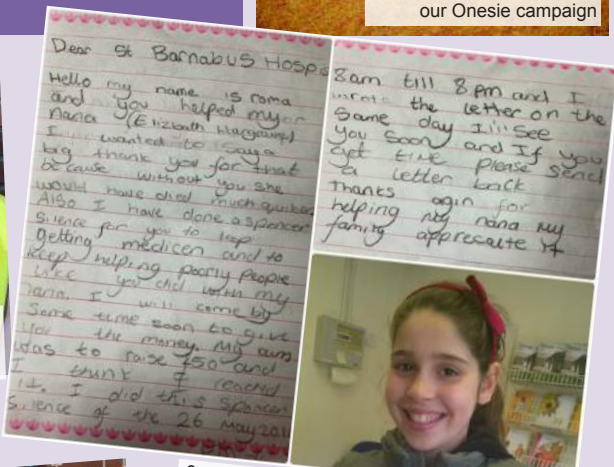 our Onesie campaign
Dear St Barnabus Hospis
Hello my name is roma
and you helped my
nana (Elizbath
I wanted to say a
big thank you for that
because without you she
would have died much quiker
Also I have done a sponcer
silence for you to keep
getting medicen and to
keep helping poorly people
like you did with my
nana. I will come by
some time soon to give
you the money. My aim
was to raise £50 and
I think I reached
it. I did this sponcer
silence of the 26 May 201
8am till 8pm and I
wrote the letter on the
same day I'll see
you soon and If you
get time please send
a letter back
Thanks agin for
helping my nana my
family apprecaite it